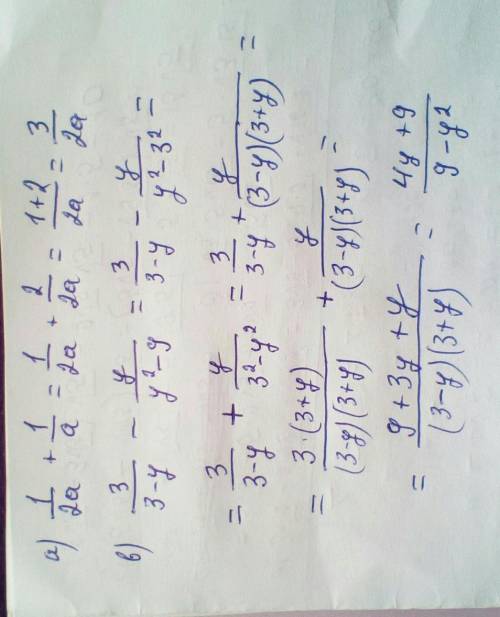 а) 1/2a + 1/a = 1/2a + 2/2a = 1+2/2a = 3/2a
в) 3/3-y - y/y²-9 = 3/3-y - y/y²-3² =
= 3/3-y + y/3²-y² = 3/3-y + y/(3-y)(3+y) =
= 3·(3+y)/(3-y)(3+y) + y/(3-y)(3+y) =
= 9+3y+y/(3-y)(3+y) = 4y+9/9-y²